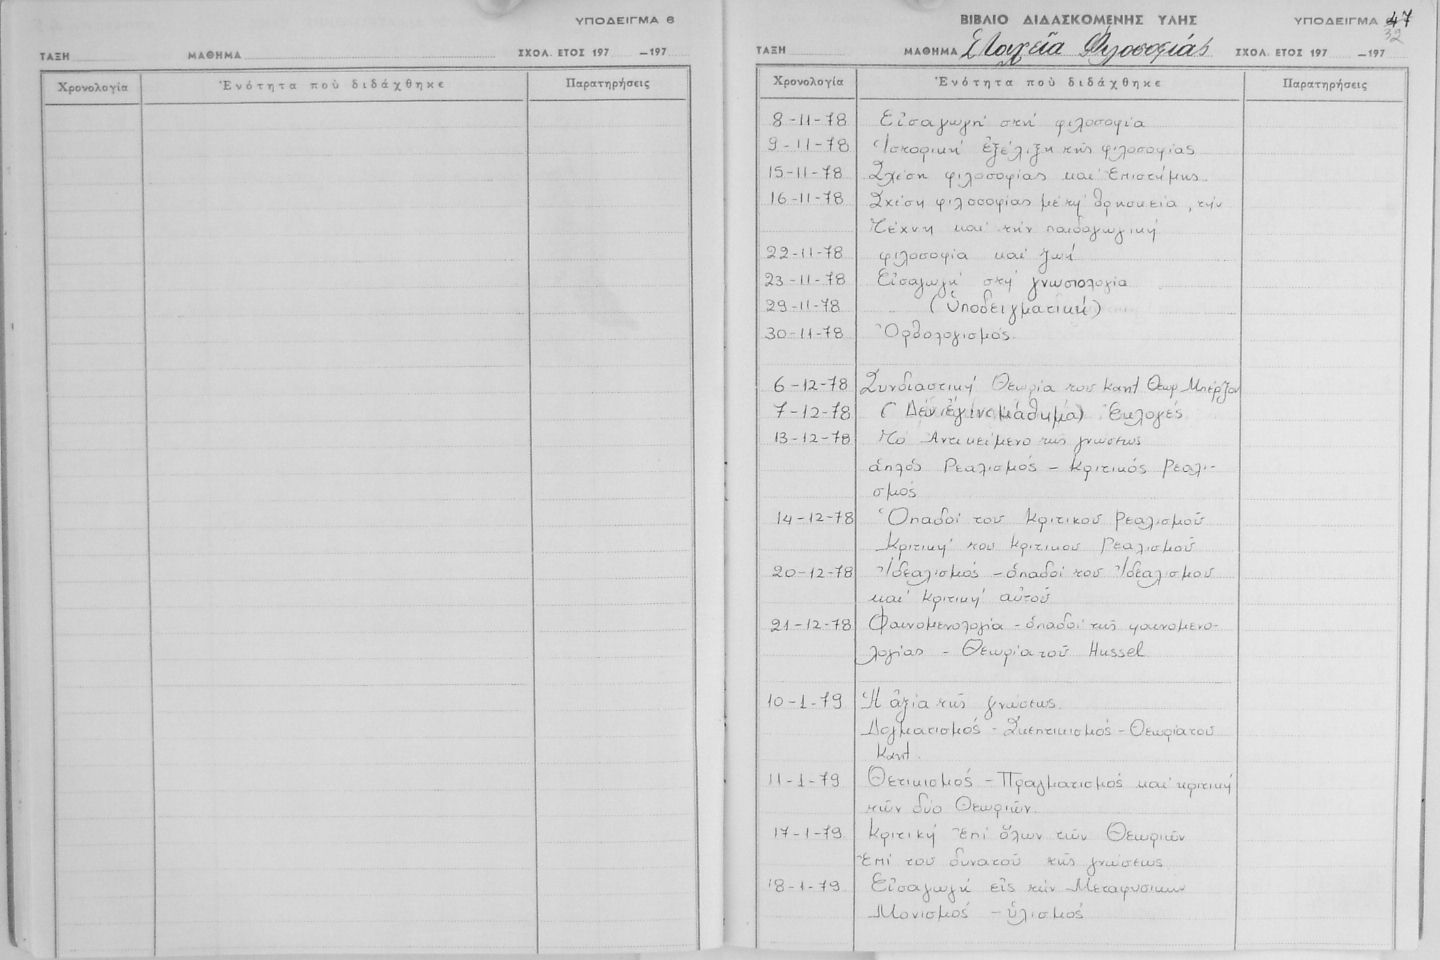 ΥΠΟΔΕΙΓΜΑ 6
ΤΑΞΗ ΜΑΘΗΜΑ ΣΧΟΛ. ΕΤΟΣ 197 –197
Χρονολογία Ἑνότητα ποὺ διδάχθηκε Παρατηρήσεις
ΒΙΒΛΙΟ ΔΙΔΑΣΚΟΜΕΝΗΣ ΥΛΗΣ ΥΠΟΔΕΙΓΜΑ 47
32
ΤΑΞΗ ΜΑΘΗΜΑ Στοιχεῖα Φιλοσοφίας ΣΧΟΛ. ΕΤΟΣ 197 –197
Χρονολογία Ἑνότητα ποὺ διδάχθηκε Παρατηρήσεις
8-11-78 Εἰσαγωγή στή φιλοσοφία
9-11-78 Ἱστορική ἐξέλιξη τῆς φιλοσοφίας
15-11-78 Σχέση φιλοσοφίας καί ἐπιστήμης
16-11-78 Σχέση φιλοσοφίας μέ τή θρησκεία, τήν
τέχνη καί τήν παιδαγωγική
22-11-78 φιλοσοφία καί ζωή
23-11-78 Εἰσαγωγή στή γνωσιολογία
29-11-78 (Ὑποδειγματική)
30-11-78 Ὀρθολογισμός
6-12-78 Συνδιαστική Θεωρία του Kant Θεωρ Μπέρξον
7-12-78 (Δέν ἔγινε μάθημα) Ἐκλογές
13-12-78 Τό Ἀντικείμενο τῆς γνώσεως
ἁπλός Ρεαλισμός – Κριτικός ρεαλι-
σμός
14-12-78 Ὀπαδοί του Κριτικού ρεαλισμοῦ
Κριτική του Κριτικού ρεαλισμοῦ
20-12-78 Ἰδεαλισμός – ὀπαδοί του Ἰδεαλισμού
καί κριτική αὐτοῦ
21-12-78 Φαινομενολογία – ὀπαδοί τῆς φαινομενο-
λογίας – Θεωρία τοῦ Hussel
10-1-79 Ἡ ἀξία τῆς γνώσεως
Δογματισμός – Σκεπτικισμός – Θεωρία τού
Kant.
11-1-79 Θετικισμός – Πραγματισμός καί κριτική
τῶν δύο Θεωριῶν.
17-1-79 Κριτική ἐπί ὅλων τῶν Θεωριῶν
ἐπί του δυνατού τῆς γνώσεως
18-1-79 Εἰσαγωγή εἰς τήν Μεταφυσικήν
Μονισμός – ὑλισμός